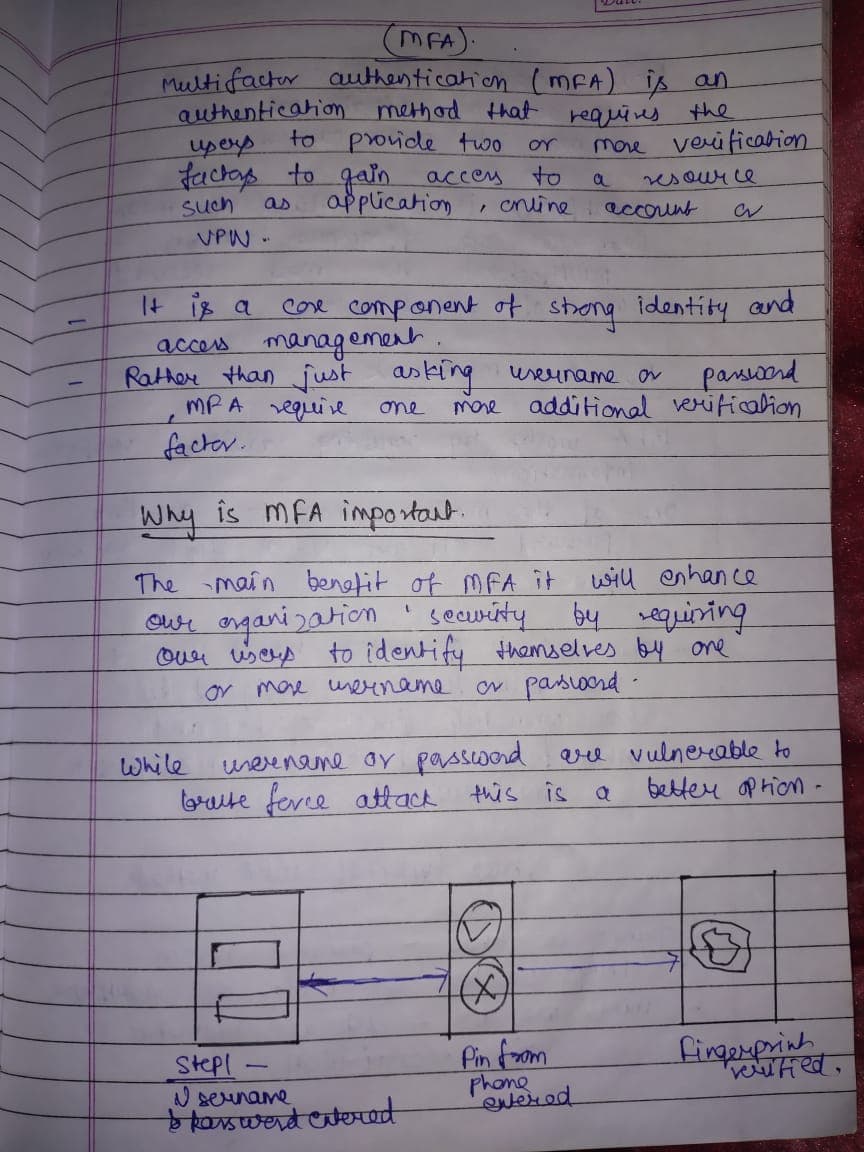 Date:
(MFA).
Multifactor authentication (MFA) is an
authentication method that requires the
users to provide two or more verification
factors to gain access to a resource
such as application, online account or
VPN.
- It is a core component of strong identity and
access management.
- Rather than just asking username or password
, MFA require one more additional verification
factor.
Why is MFA important.
The main benefit of MFA it will enhance
our organization's security by requiring
our users to identify themselves by one
or more username or password.
While username or password are vulnerable to
brute force attack this is a better option.
Step1 -
Username
& password entered
Pin from
phone
entered
Fingerprint
verified.